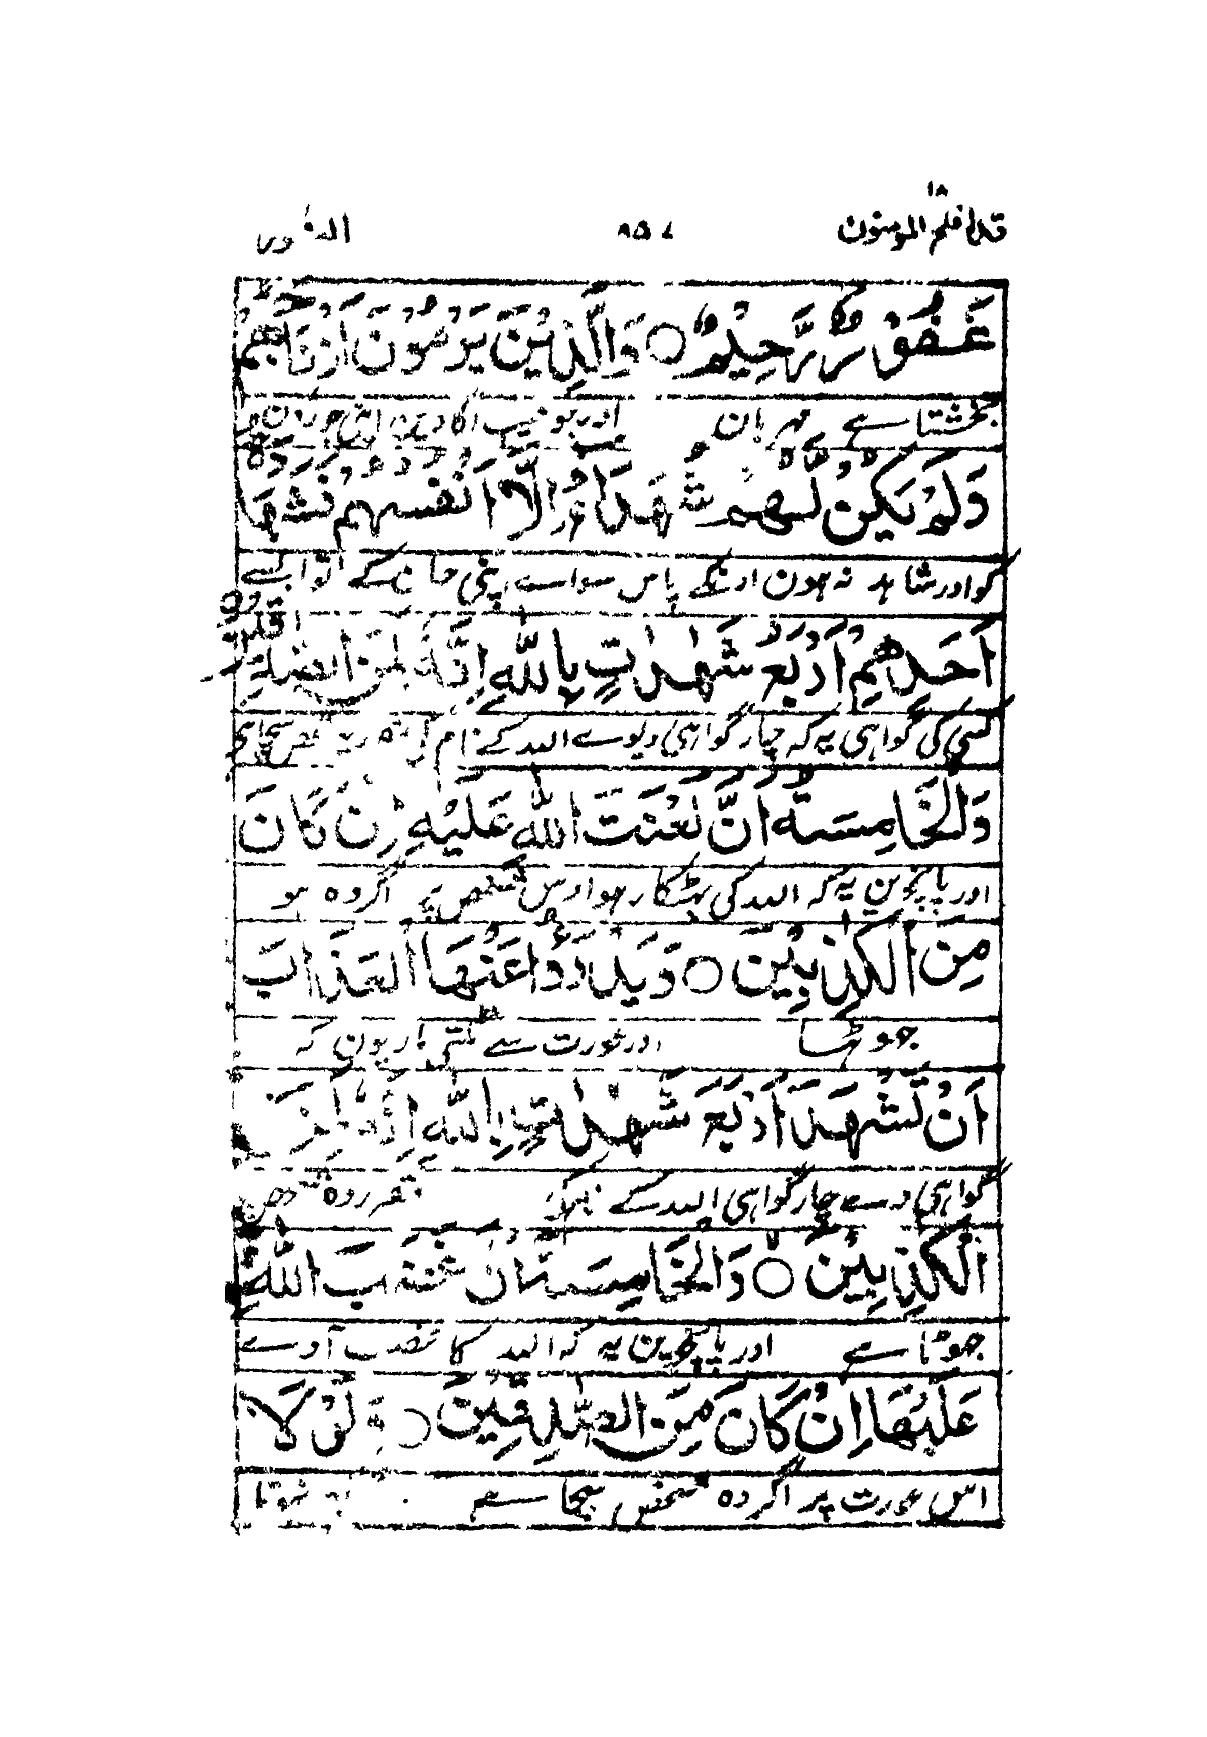 ۱۸
قد افلح المومنون ۸۵۷ النور
غَفُوْرٌ رَّحِيْمٌ ○ وَالَّذِيْنَ يَرْمُوْنَ اَزْوَاجَهُمْ
بخشتا ہے مہربان اور جو عیب لگا دین اپنی جورون
وَلَمْ يَكُنْ لَّهُمْ شُهَدَآءُ اِلَّآ اَنْفُسُهُمْ فَشَهَا
کو اور شاہد نہ ہون اونکے پاس سواے اپنی جان کے تو ایسے
دَةُ
اَحَدِهِمْ اَرْبَعُ شَهٰدٰتٍ بِاللّٰهِ اِنَّهٗ لَمِنَ الصّٰدِقِيْنَ
کسی کی گواہی یہ کہ چار گواہی دیوے اللہ کے نام کی شخص سچا ہے
وَالْخَامِسَةُ اَنَّ لَعْنَتَ اللّٰهِ عَلَيْهِ اِنْ كَانَ
اور پانچوین یہ کہ اللہ کی پھٹکار ہو اوس شخص پر اگر وہ ہو
مِنَ الْكٰذِبِيْنَ ○ وَيَدْرَؤُا عَنْهَا الْعَذَابَ
جھوٹھا اور عورت سے ٹلتی مار یون کہ
اَنْ تَشْهَدَ اَرْبَعَ شَهٰدٰتٍ بِاللّٰهِ اِنَّهٗ لَمِنَ
گواہی دے چار گواہی اللہ کے نام کی مقرر وہ شخص
الْكٰذِبِيْنَ ○ وَالْخَامِسَةَ اَنَّ غَضَبَ اللّٰهِ
جھوٹا ہے اور پانچوین یہ کہ اللہ کا غضب آوے
عَلَيْهَا اِنْ كَانَ مِنَ الصّٰدِقِيْنَ ○ وَلَوْ لَا
اس عورت پر اگر وہ شخص سچا ہے نہوتا